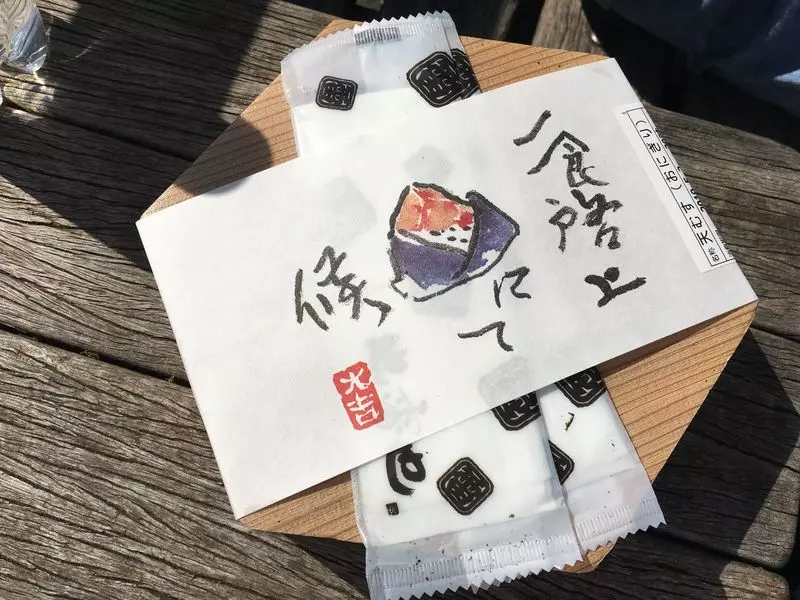 名称 天むす(おにぎり)
一食啓上
にて
候